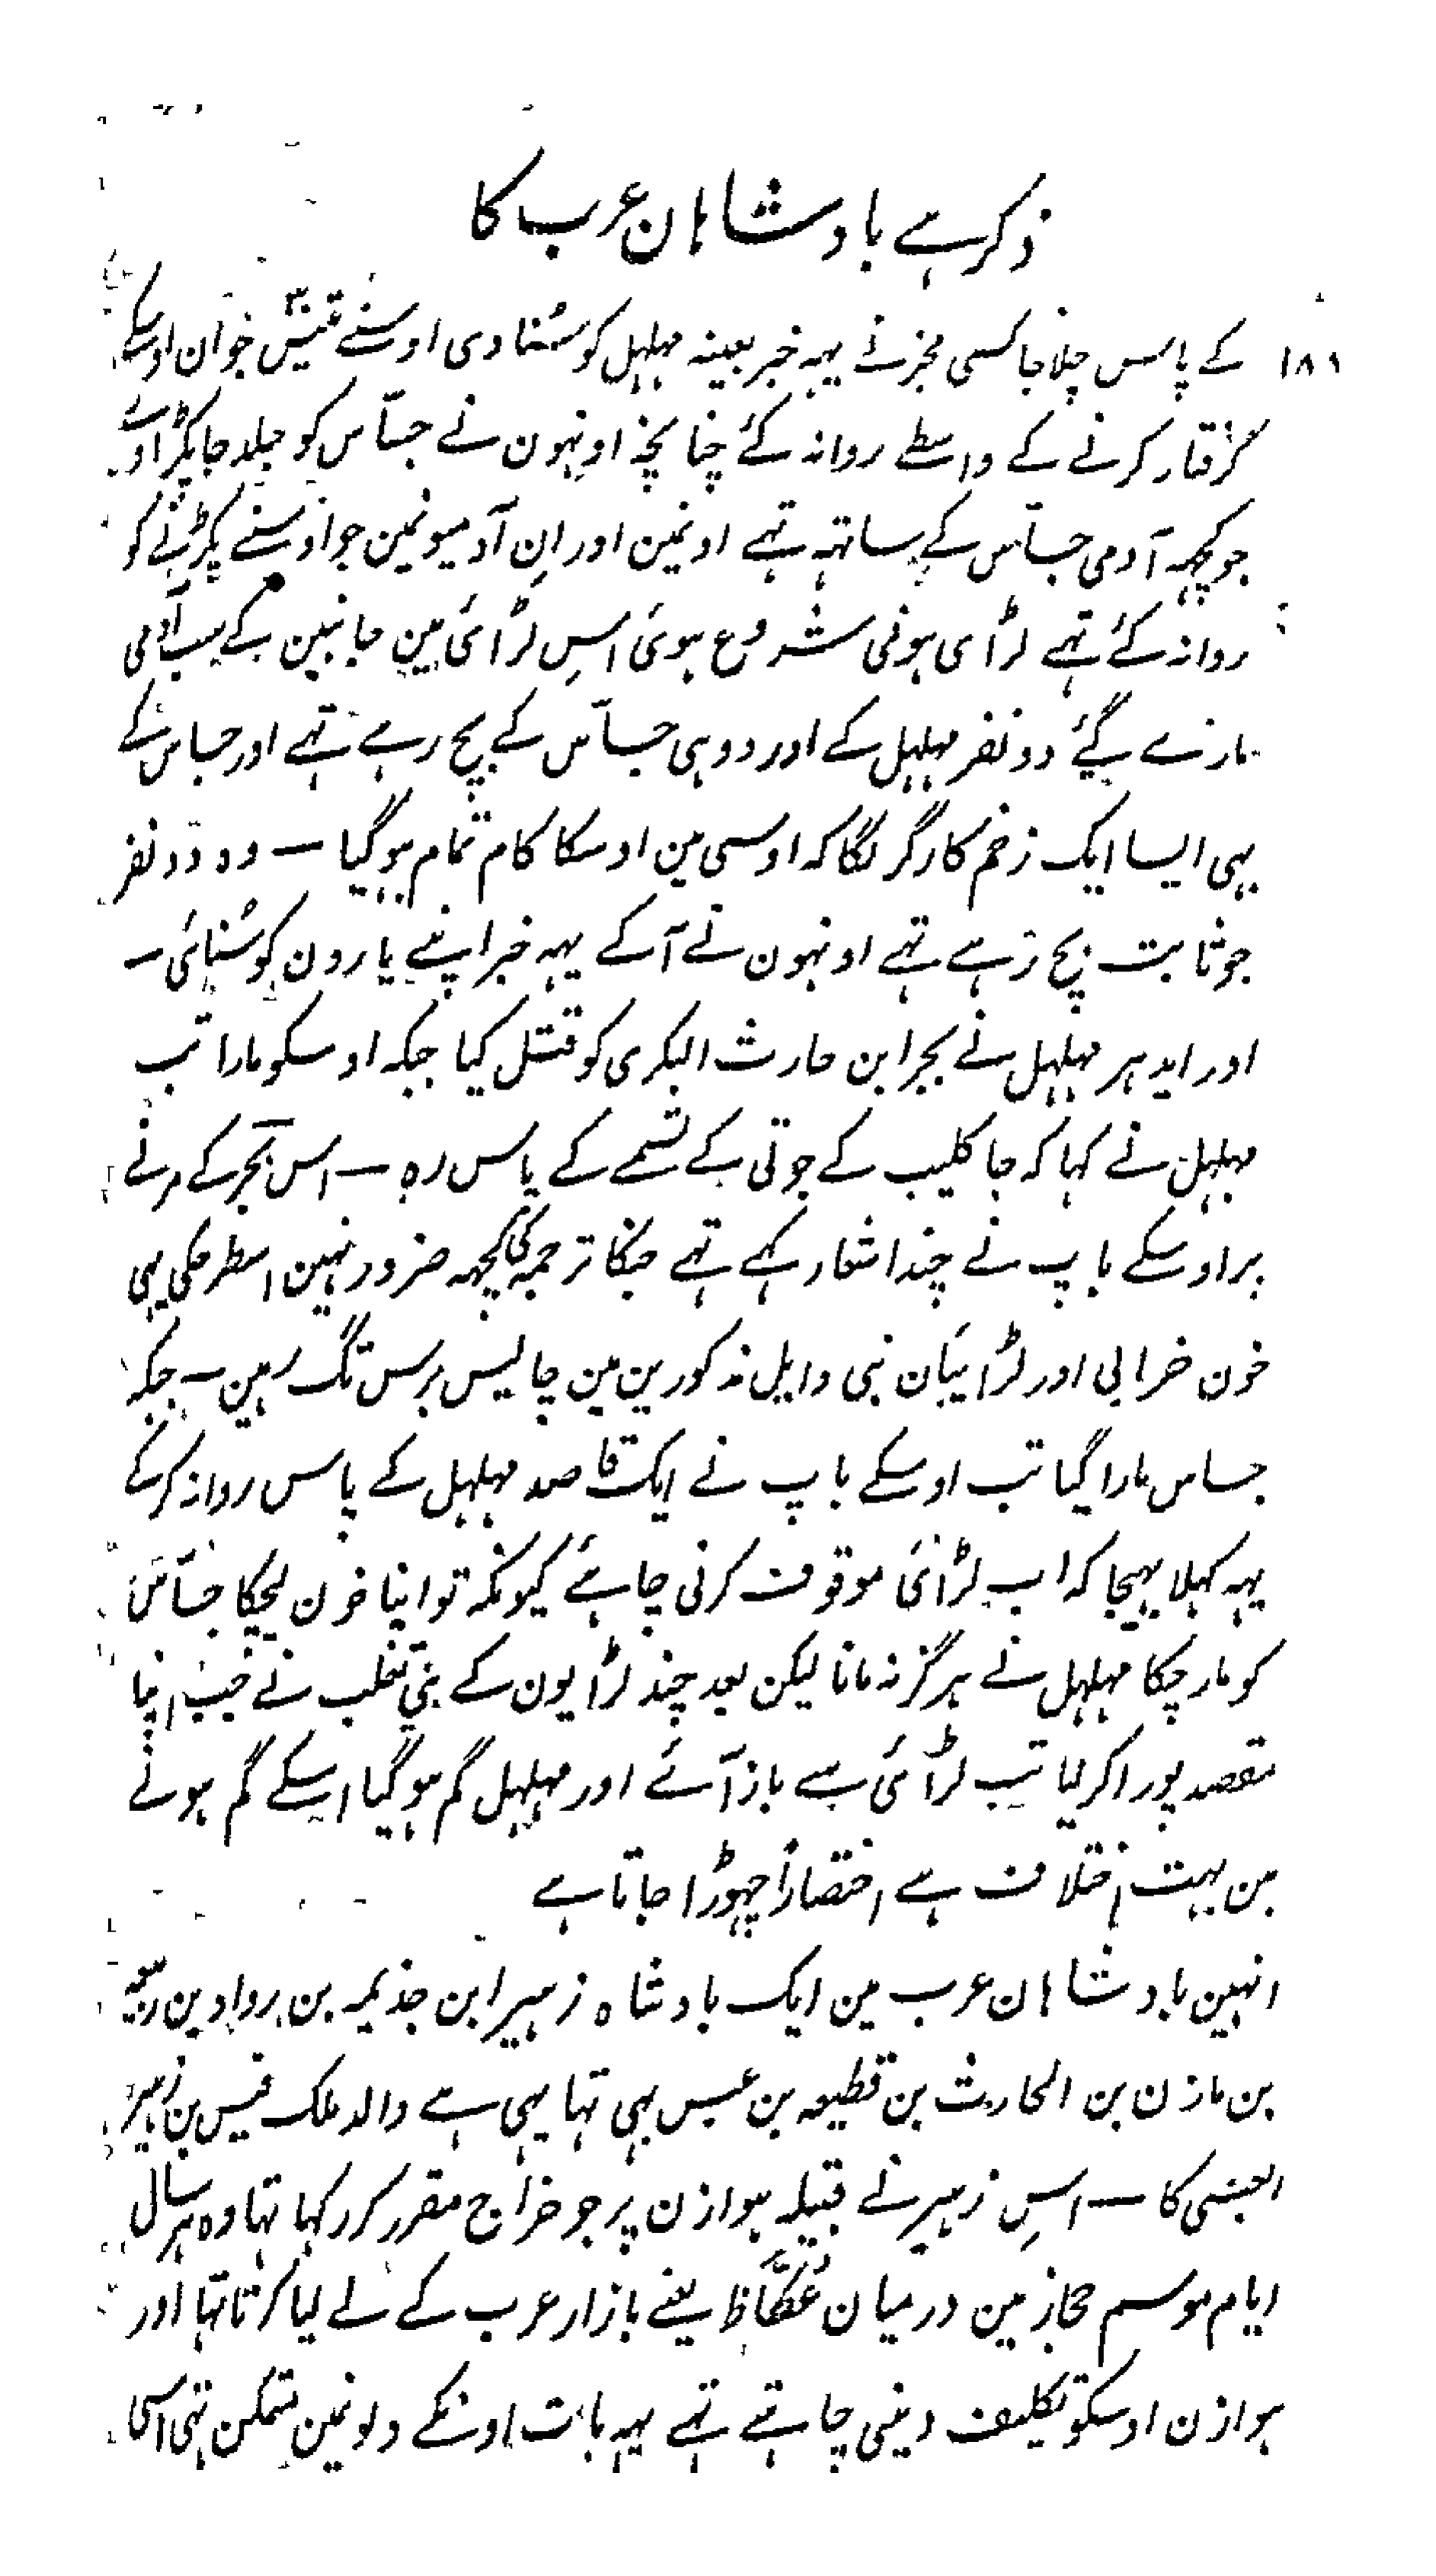 ذکر ہے بادشاہان عرب کا
۱۸۱ کے پاس چلا جا کسی مخبر نے یہہ خبر بعینہ مہلہل کو سُنا دی اوسنے تیس ۳۰ جوان اوسکے
گرفتار کرنے کے واسطے روانہ کئے چنانچہ اونہون نے جساّس کو جلد جا پکڑا اور
جو کچہہ آدمی جساّس کے ساتہہ تہے اونمین اور اِن آدمیونمین جو اوسنے پکڑنے کو
روانہ کئے تہے لڑائی ہونی شروع ہوئی اسِ لڑائی مین جانبین کے سب آدمی
مارے گئے دو نفر مہلہل کے اور دو ہی جساّس کے بچ رہے تہے اور جساس کے
بہی ایسا ایک زخم کارگر لگا کہ اوسی مین اوسکا کام تمام ہو گیا ــ وہ دو نفر
جو ثابت بچ رہے تہے اونہون نے آکے یہہ خبر اپنے یارون کو سُنائی ــ
اور ایدہر مہلہل نے بجیر ابن حارث البکری کو قتل کیا جبکہ اوسکو مارا تب
مہلہل نے کہا کہ جا کلیب کے جوتی کے تسمے کے پاس رہ ــ اس بجیر کے مرنے
پر اوسکے باپ نے چند اشعار کہے تہے جنکا ترجمہ کی کچہہ ضرور نہین اسطرحکی ہی
خون خرابی اور لڑائیان بنی وایل مذکورین مین چالیس برس تک رہین ــ جبکہ
جساس مارا گیا تب اوسکے باپ نے ایک قاصد مہلہل کے پاس روانہ کر کے
یہہ کہلا بہیجا کہ اب لڑائی موقوف کرنی چاہئے کیونکہ تو اپنا خون لیچکا جساّس
کو مار چکا مہلہل نے ہرگز نہ مانا لیکن بعد چند لڑایون کے بنی تغلب نے جب اپنا
مقصد پورا کر لیا تب لڑائی سے باز آئے اور مہلہل گم ہو گیا اسکے گم ہونے
مین بہت اختلاف ہے اختصاراً چہوڑا جاتا ہے
انہین بادشاہان عرب مین ایک بادشاہ زہیر ابن جذیمہ بن رواد بن ربیعہ
بن مازن بن الحارث بن قطیعہ بن عبس بہی تہا یہی ہے والد ملک قیس بن زہیر
العبسی کا ــ اسِ زہیر نے قبیلہ ہوازن پر جو خراج مقرر کر رکہا تہا وہ ہر سال
ایام موسم حجاز مین درمیان عُکَّاظ یعنے بازار عرب کے لے لیا کرتا تہا اور
ہوازن اوسکو تکلیف دینی چاہتے تہے یہہ بات اونکے دلونمین متمکن تہی اسی